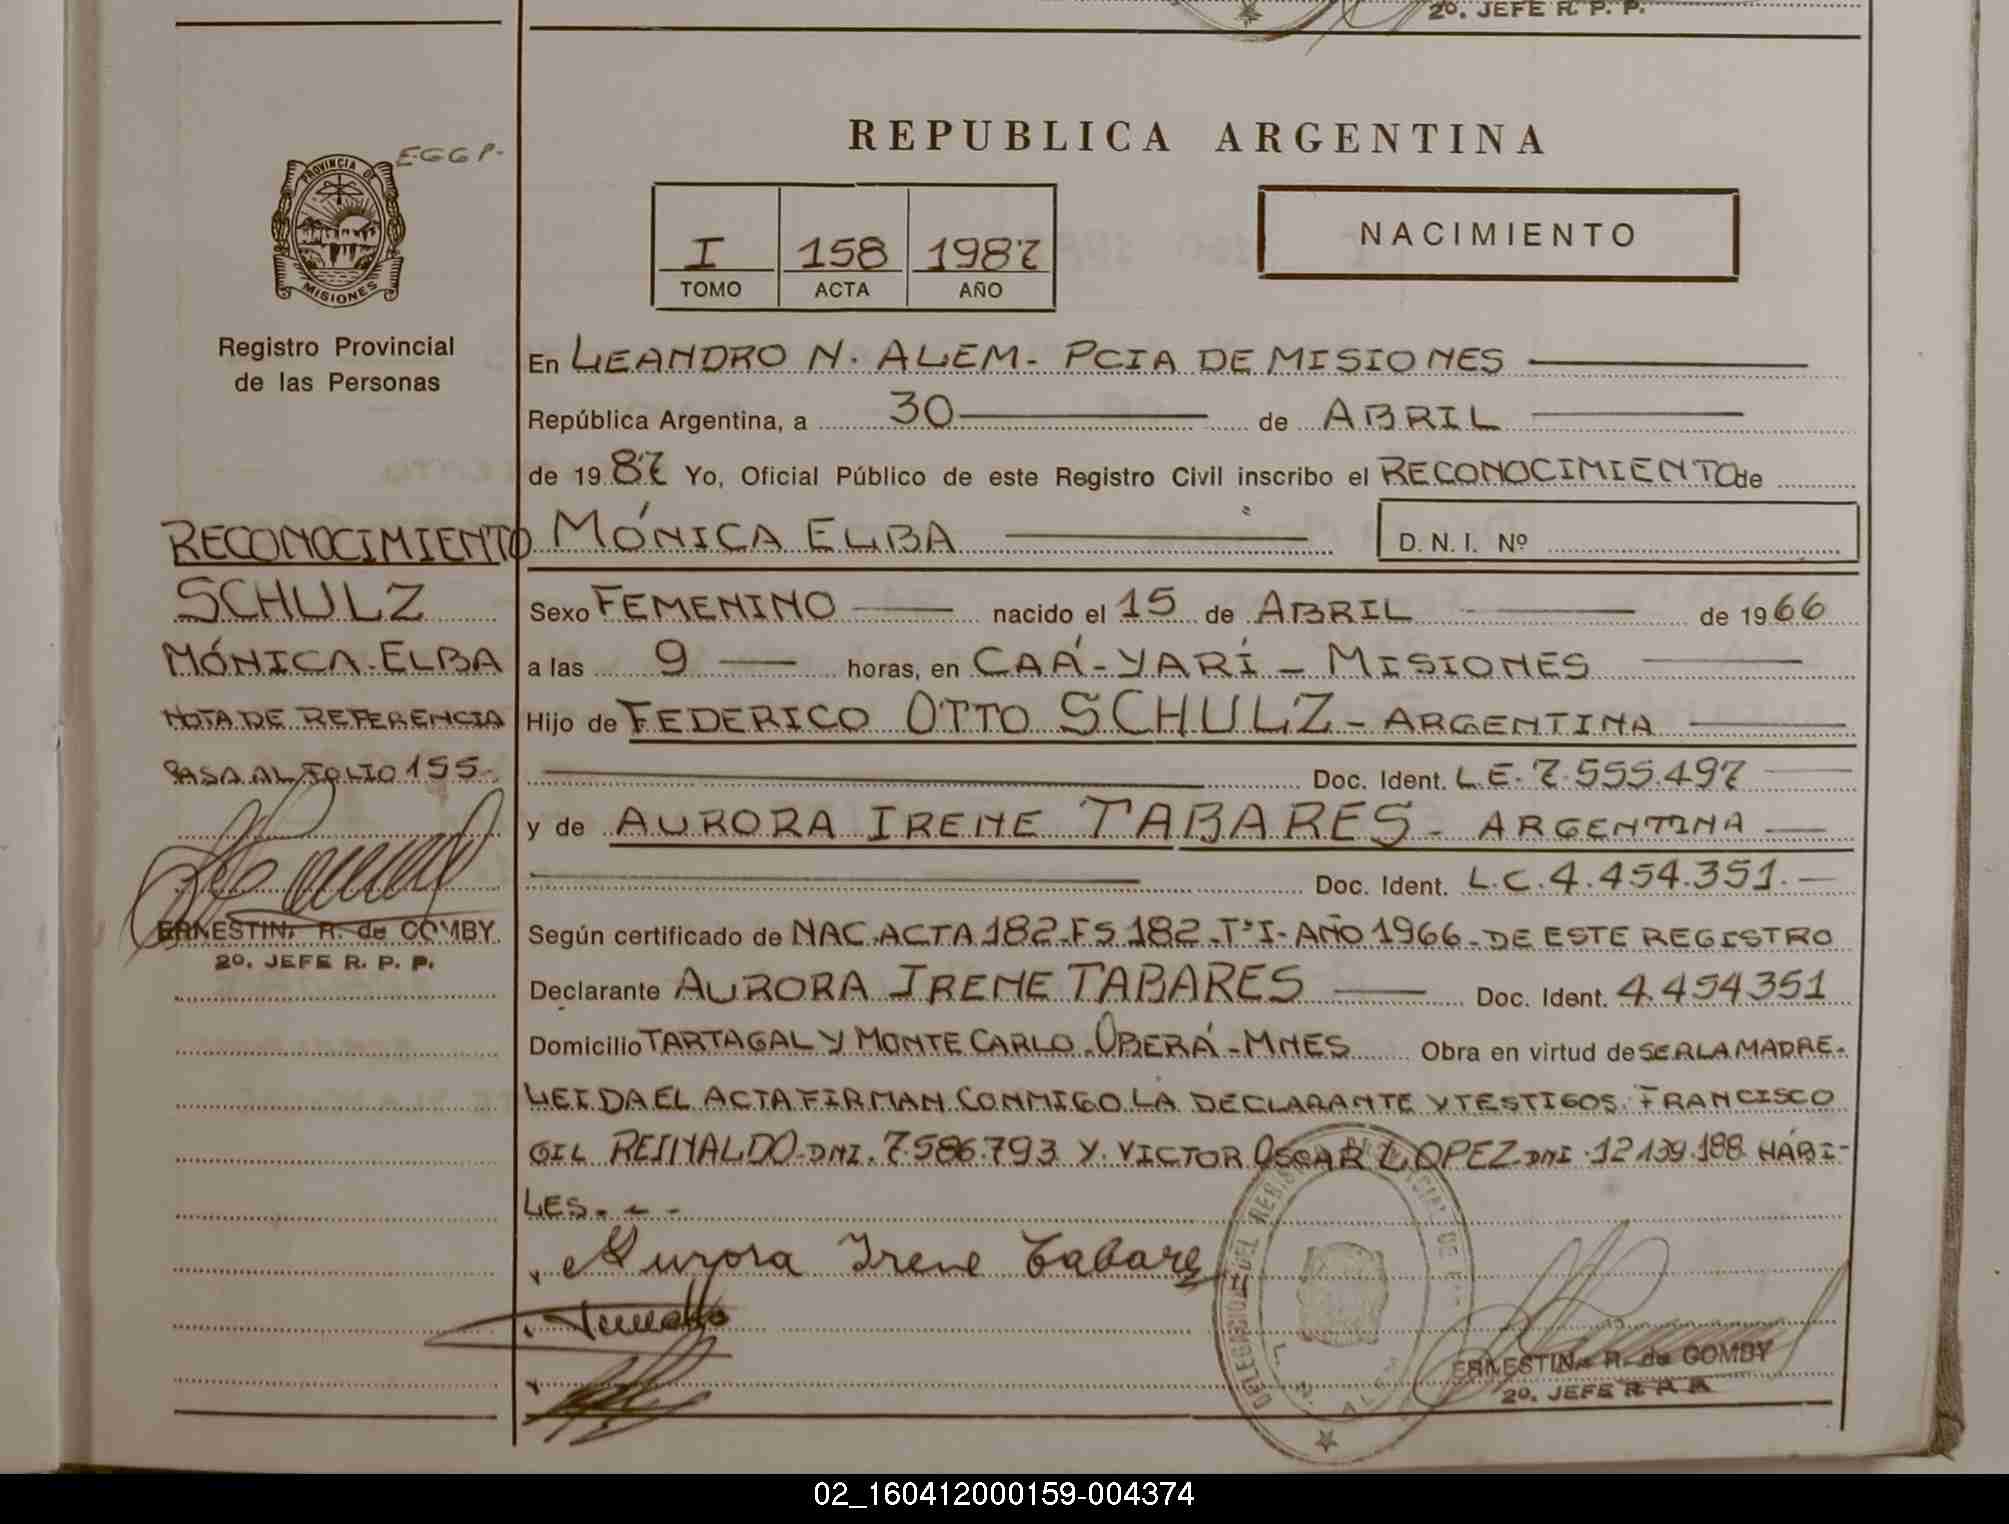 2º. JEFE R. P. P.
REPUBLICA ARGENTINA
EGGP.
PROVINCIA DE
MISIONES
I 158 1987
TOMO ACTA AÑO
NACIMIENTO
Registro Provincial
de las Personas
En LEANDRO N. ALEM - PCIA DE MISIONES
República Argentina, a 30 de ABRIL
de 1987 Yo, Oficial Público de este Registro Civil inscribo el RECONOCIMIENTO de
MÓNICA ELBA D. N. I. Nº
Sexo FEMENINO nacido el 15 de ABRIL de 1966
a las 9 horas, en CAÁ-YARÍ - MISIONES
Hijo de FEDERICO OTTO SCHULZ - ARGENTINA
Doc. Ident. L.E. 7.555.497
y de AURORA IRENE TABARES - ARGENTINA
Doc. Ident. L.C. 4.454.351.
Según certificado de NAC. ACTA 182 - FS 182 - Tº I - AÑO 1966 - DE ESTE REGISTRO
Declarante AURORA IRENE TABARES Doc. Ident. 4.454351
Domicilio TARTAGAL Y MONTE CARLO. OBERÁ - MNES Obra en virtud de SER LA MADRE.
LEIDA EL ACTA FIRMAN CONMIGO LA DECLARANTE Y TESTIGOS. FRANCISCO
GIL REINALDO - DNI. 7.586.793 Y VICTOR OSCAR LOPEZ DNI. 12.139.188 HÁBI-
LES. - -
Aurora Irene Tabares
ERNESTINA R. de GOMBY
2º. JEFE R. P. P.
RECONOCIMIENTO
SCHULZ
MÓNICA ELBA
NOTA DE REFERENCIA
PASA AL FOLIO 155-
ERNESTINA R. de GOMBY
2º. JEFE R. P. P.
02_160412000159-004374